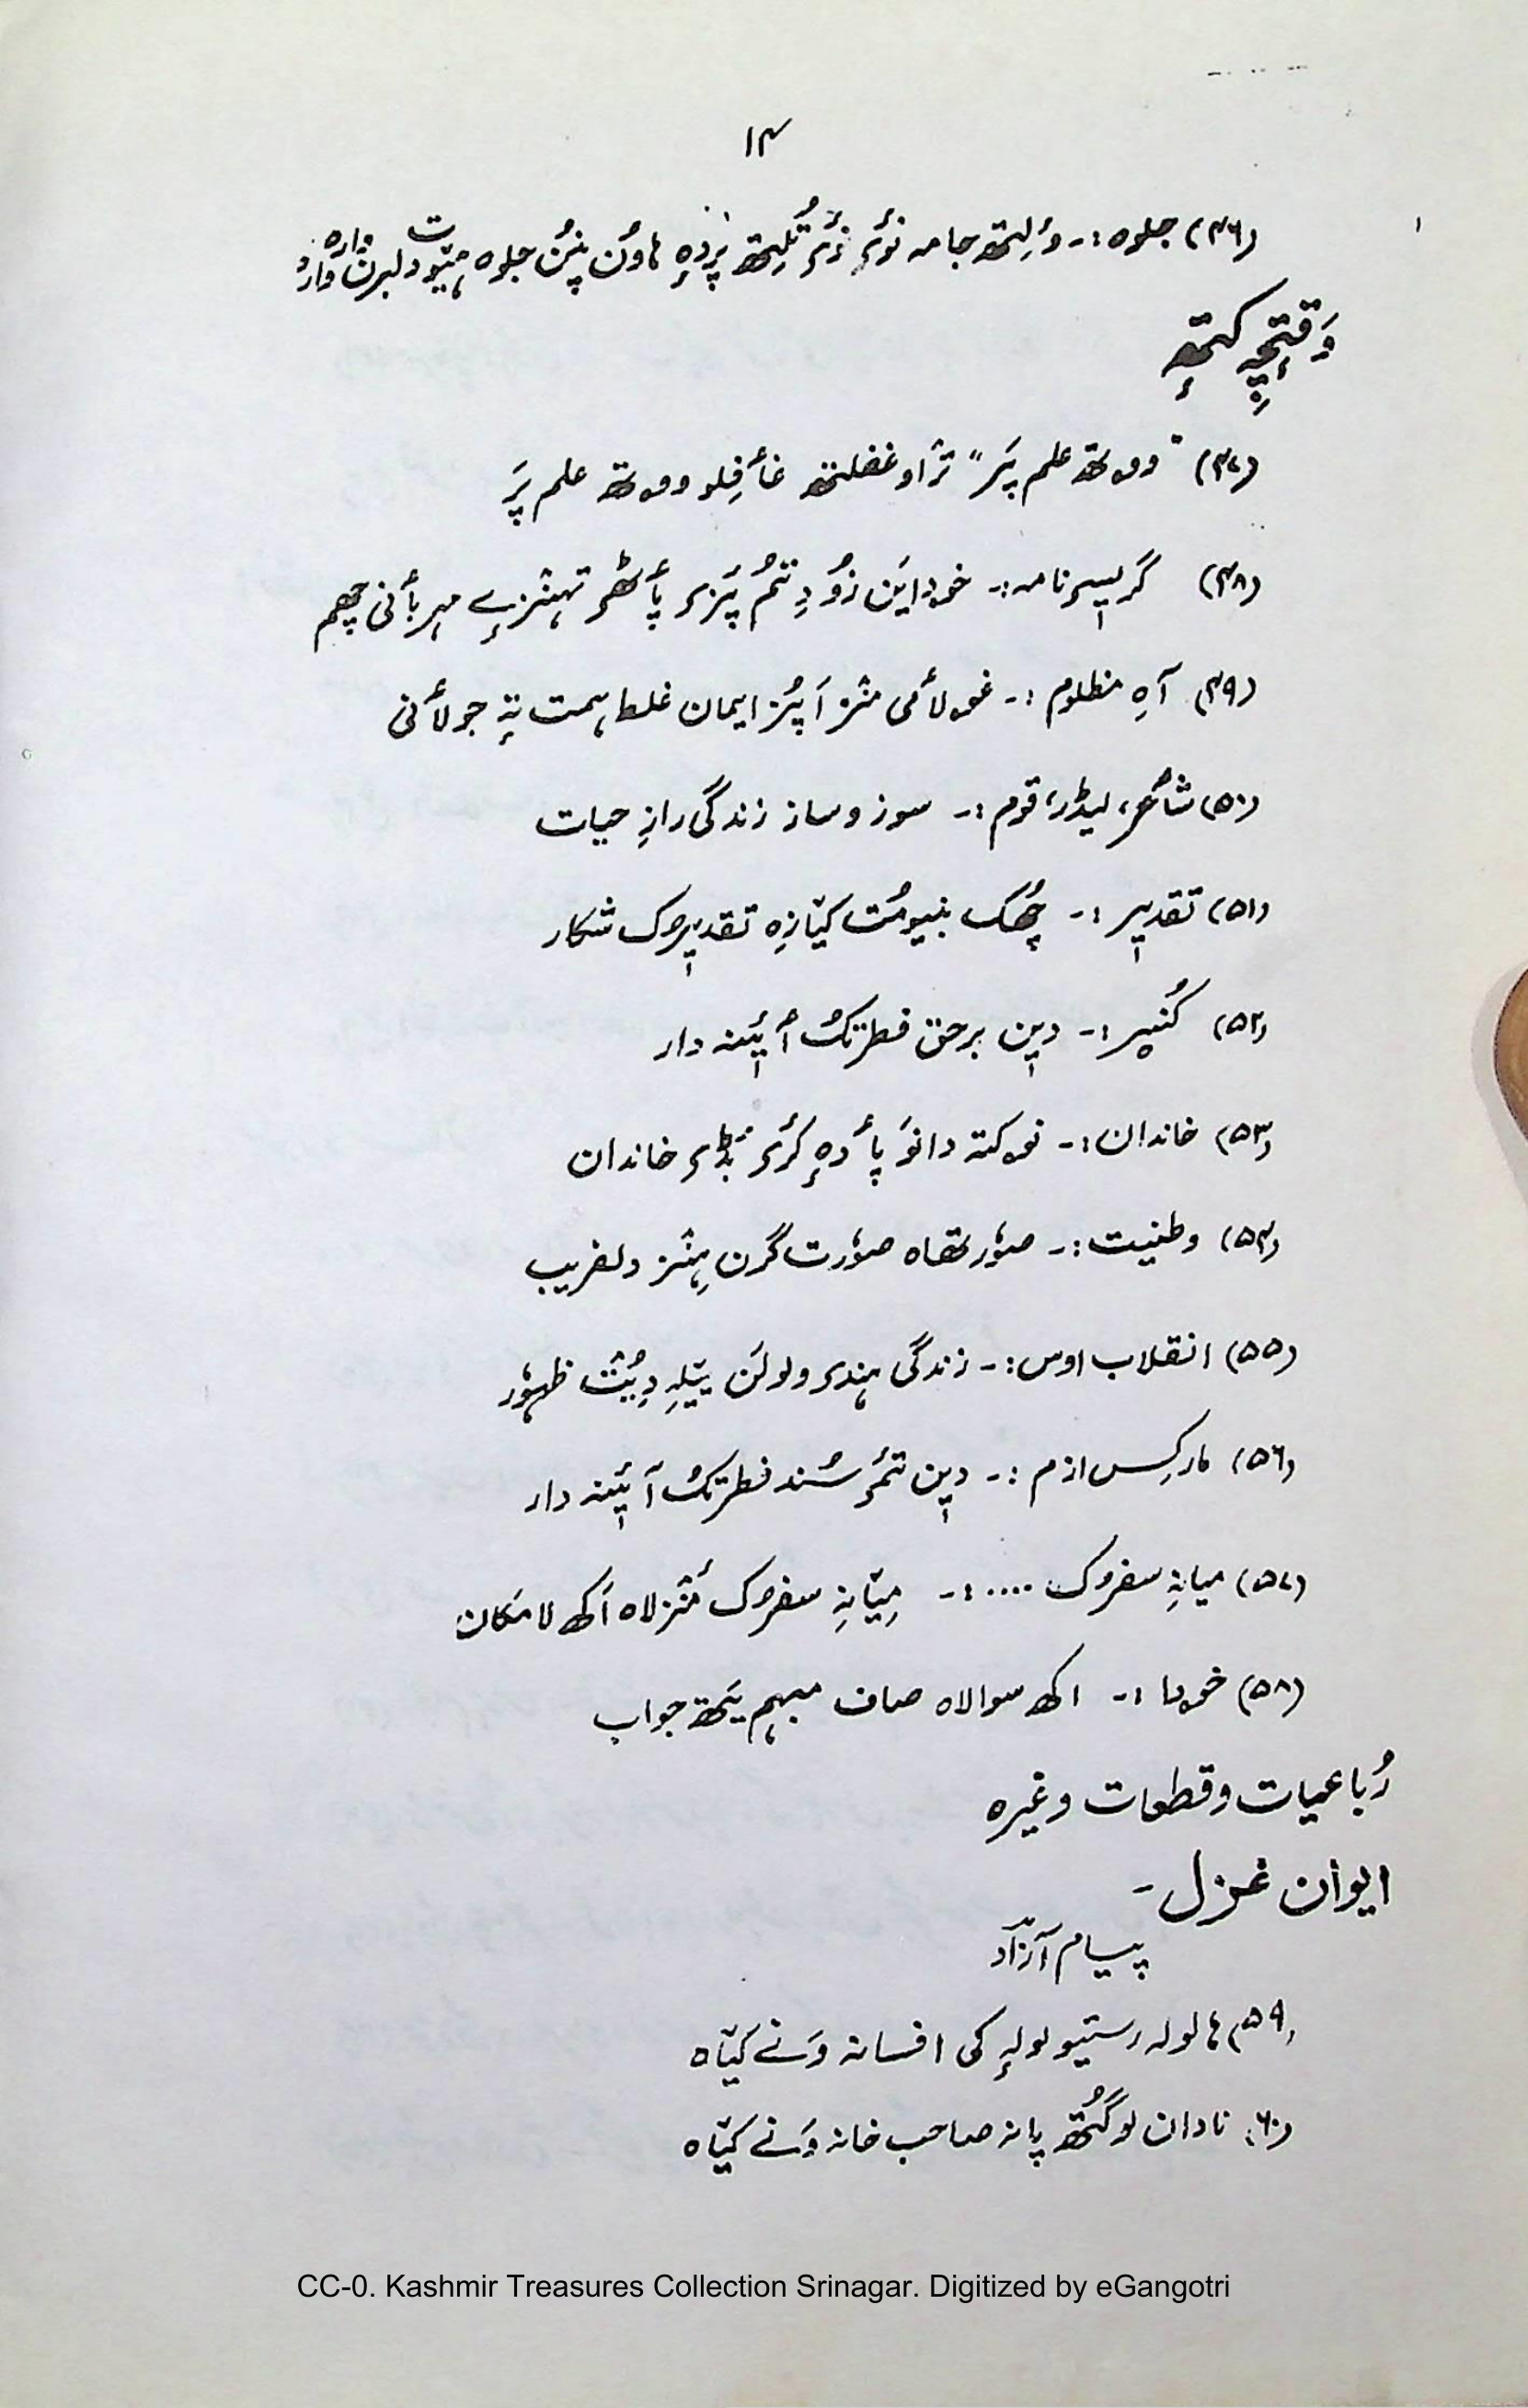 ۱۴
(۴۶) جلوہ :- وٲلِتھ جامہ نوٚی زٔر تُلِتھ پردٕہ ہاوُن پنُن جلوہ ہیٚتیو دلبرن وارہ وارٕ
وَقتٕچہِ کتھٕ
(۴۷) "ووتھ علم پَر" ترٛاو غفلتھ غٲفِلو ووتھ علم پَر
(۴۸) گریٖس نامہ :- خودایَن زُو دِتُم پَزر پٲٹھر تہنٛزے مہربٲنی چھم
(۴۹) آہِ مظلوم :- غولٲمی منٛز اَپُز ایمان غلط ہمت تہٕ جولٲنی
(۵۰) شٲعر، لیڈر، قوم :- سوز و ساز زندگی رازِ حیات
(۵۱) تقدیٖر :- چُھک بنیومُت کیٛازِہ تقدیٖرک شکار
(۵۲) کُنیر :- دیٖن برحق فطرتُک آیٖنہ دار
(۵۳) خاندان :- نوکتہ دانَو پٲدٕہ کٔر بٔڈر خاندان
(۵۴) وطنیت :- صوٗرتھاہ صوٗرت گرن ہِنٛز دلفریب
(۵۵) انقلاب اوس :- زندگی ہندر ولولَن ییٚلہِ دِیُت ظہوٗر
(۵۶) مارکِس ازم :- دیٖن تٔمر سُند فطرتُک آیٖنہ دار
(۵۷) میانہِ سفرک .... :- مِیٛانہِ سفرک مٔنٛزلاہ اَکھ لامَکان
(۵۸) خودا :- اکھ سوالاہ صاف مبہم یَتھ جواب
رُباعیات و قطعات وغیرہ
ایوان غزل -
پیسام آزاد
(۵۹) ہا لولہ رستیو لولہٕ کی افسانہ وَنے کیٛاہ
(۶۰) نادان لوگُتھ پانہ صاحب خانہ وَنے کیٛاہ
CC-0. Kashmir Treasures Collection Srinagar. Digitized by eGangotri